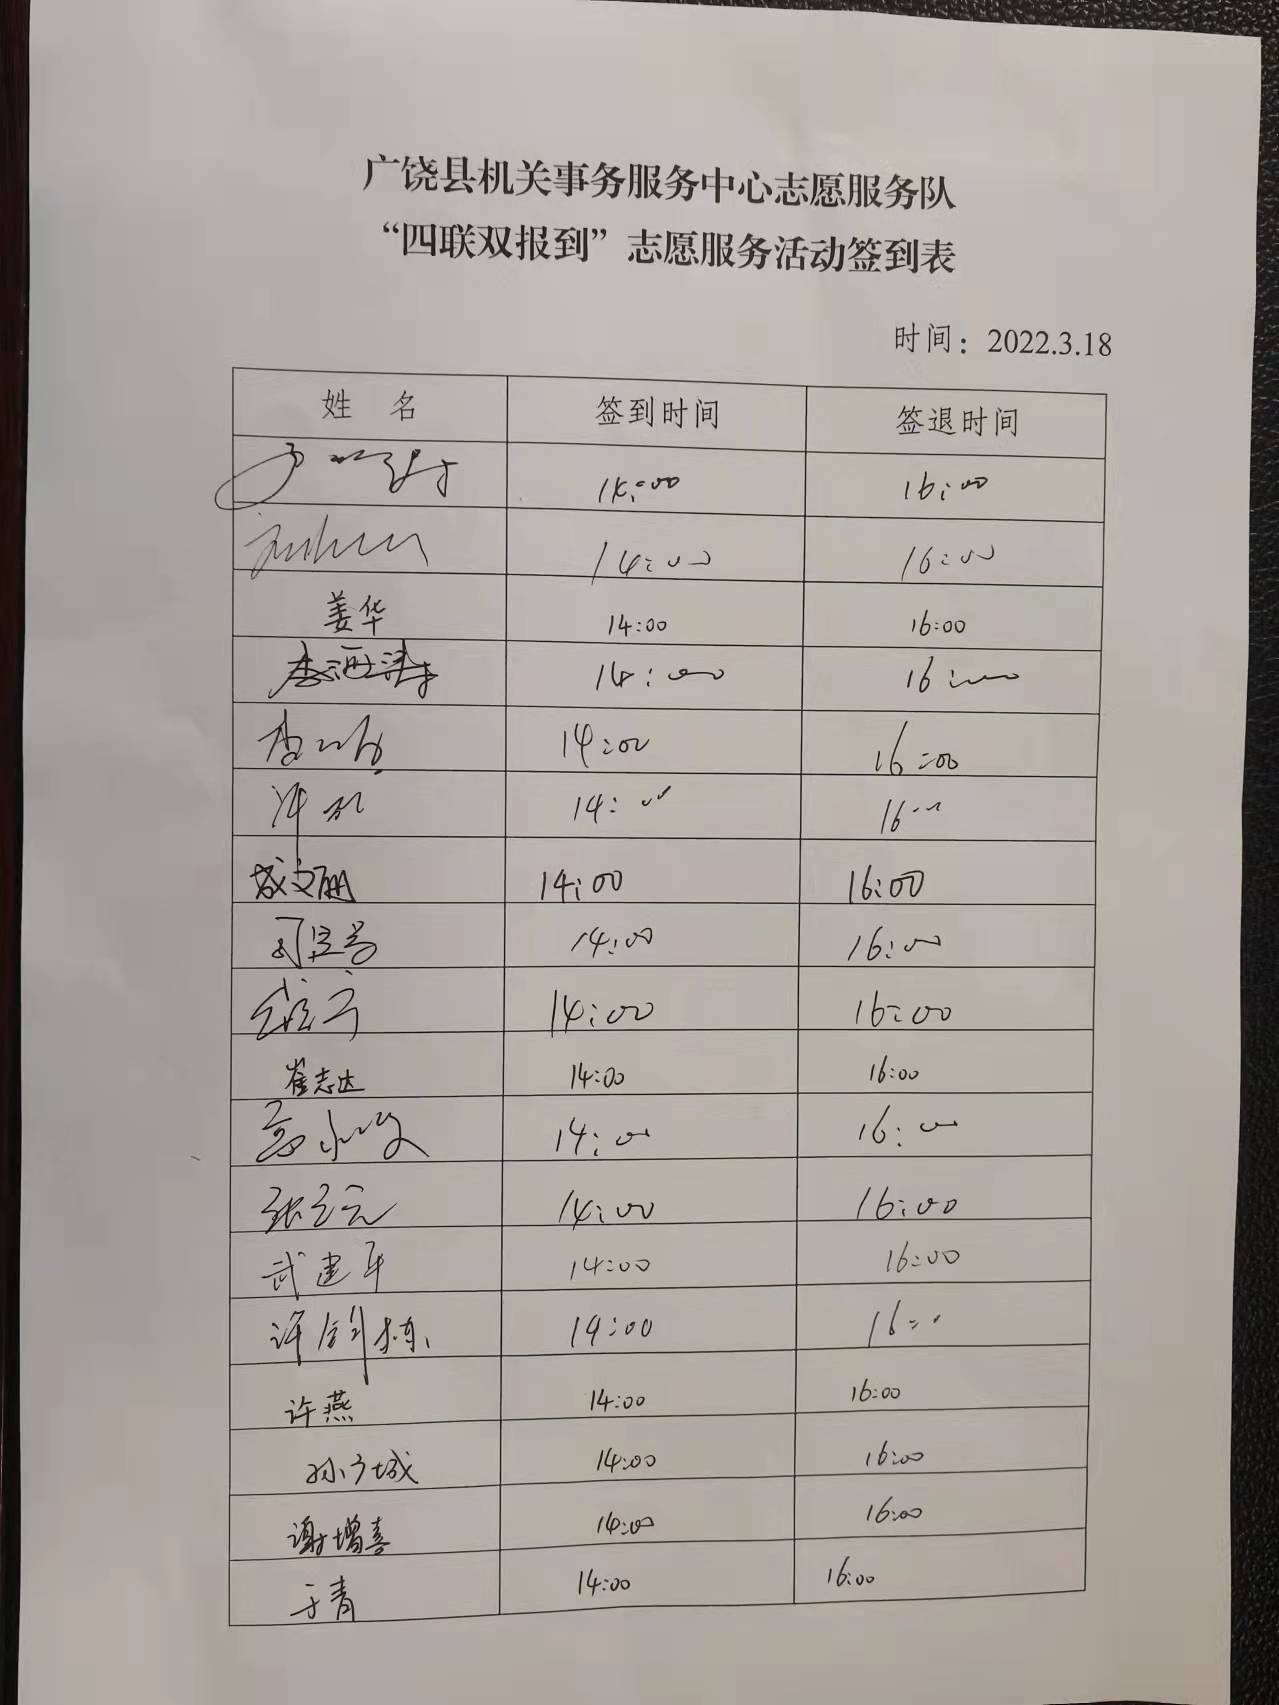 广饶县机关事务服务中心志愿服务队
“四联双报到”志愿服务活动签到表
时间：2022.3.18
姓 名 签到时间 签退时间
14:00 16:00
14:00 16:00
姜华 14:00 16:00
14:00 16:00
14:00 16:00
14:00 16:00
成文丽 14:00 16:00
14:00 16:00
14:00 16:00
崔志达 14:00 16:00
14:00 16:00
14:00 16:00
武建军 14:00 16:00
14:00 16:00
许燕 14:00 16:00
孙广城 14:00 16:00
谢增喜 14:00 16:00
于青 14:00 16:00